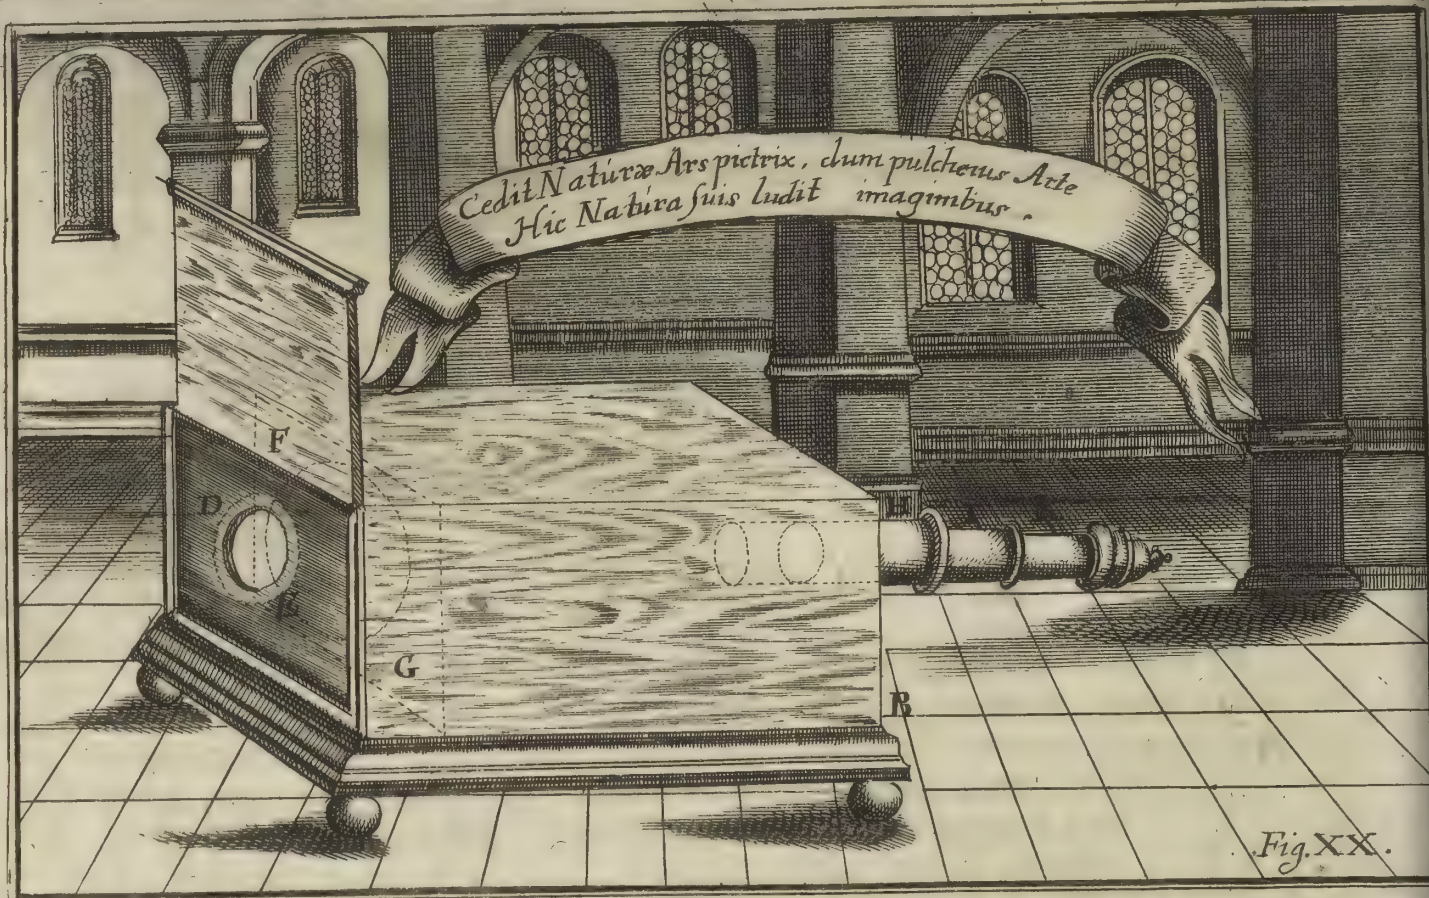 Cedit Natúræ Ars pictrix, dum pulcherius Arte
Hic Natúra ſuis ludit imaginibus.
F
D
H
E
G
B
Fig. XX.